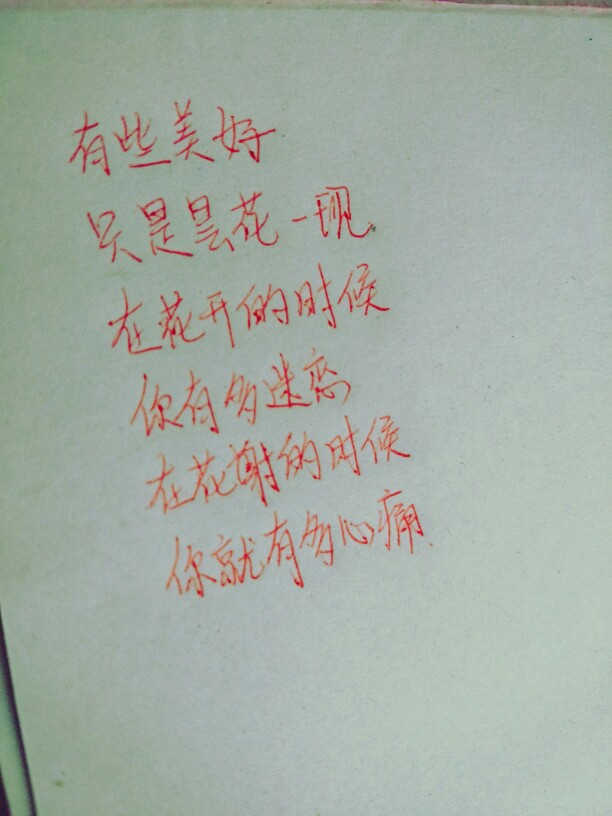 有些美好
只是昙花一现
在花开的时候
你有多迷恋
在花谢的时候
你就有多心痛